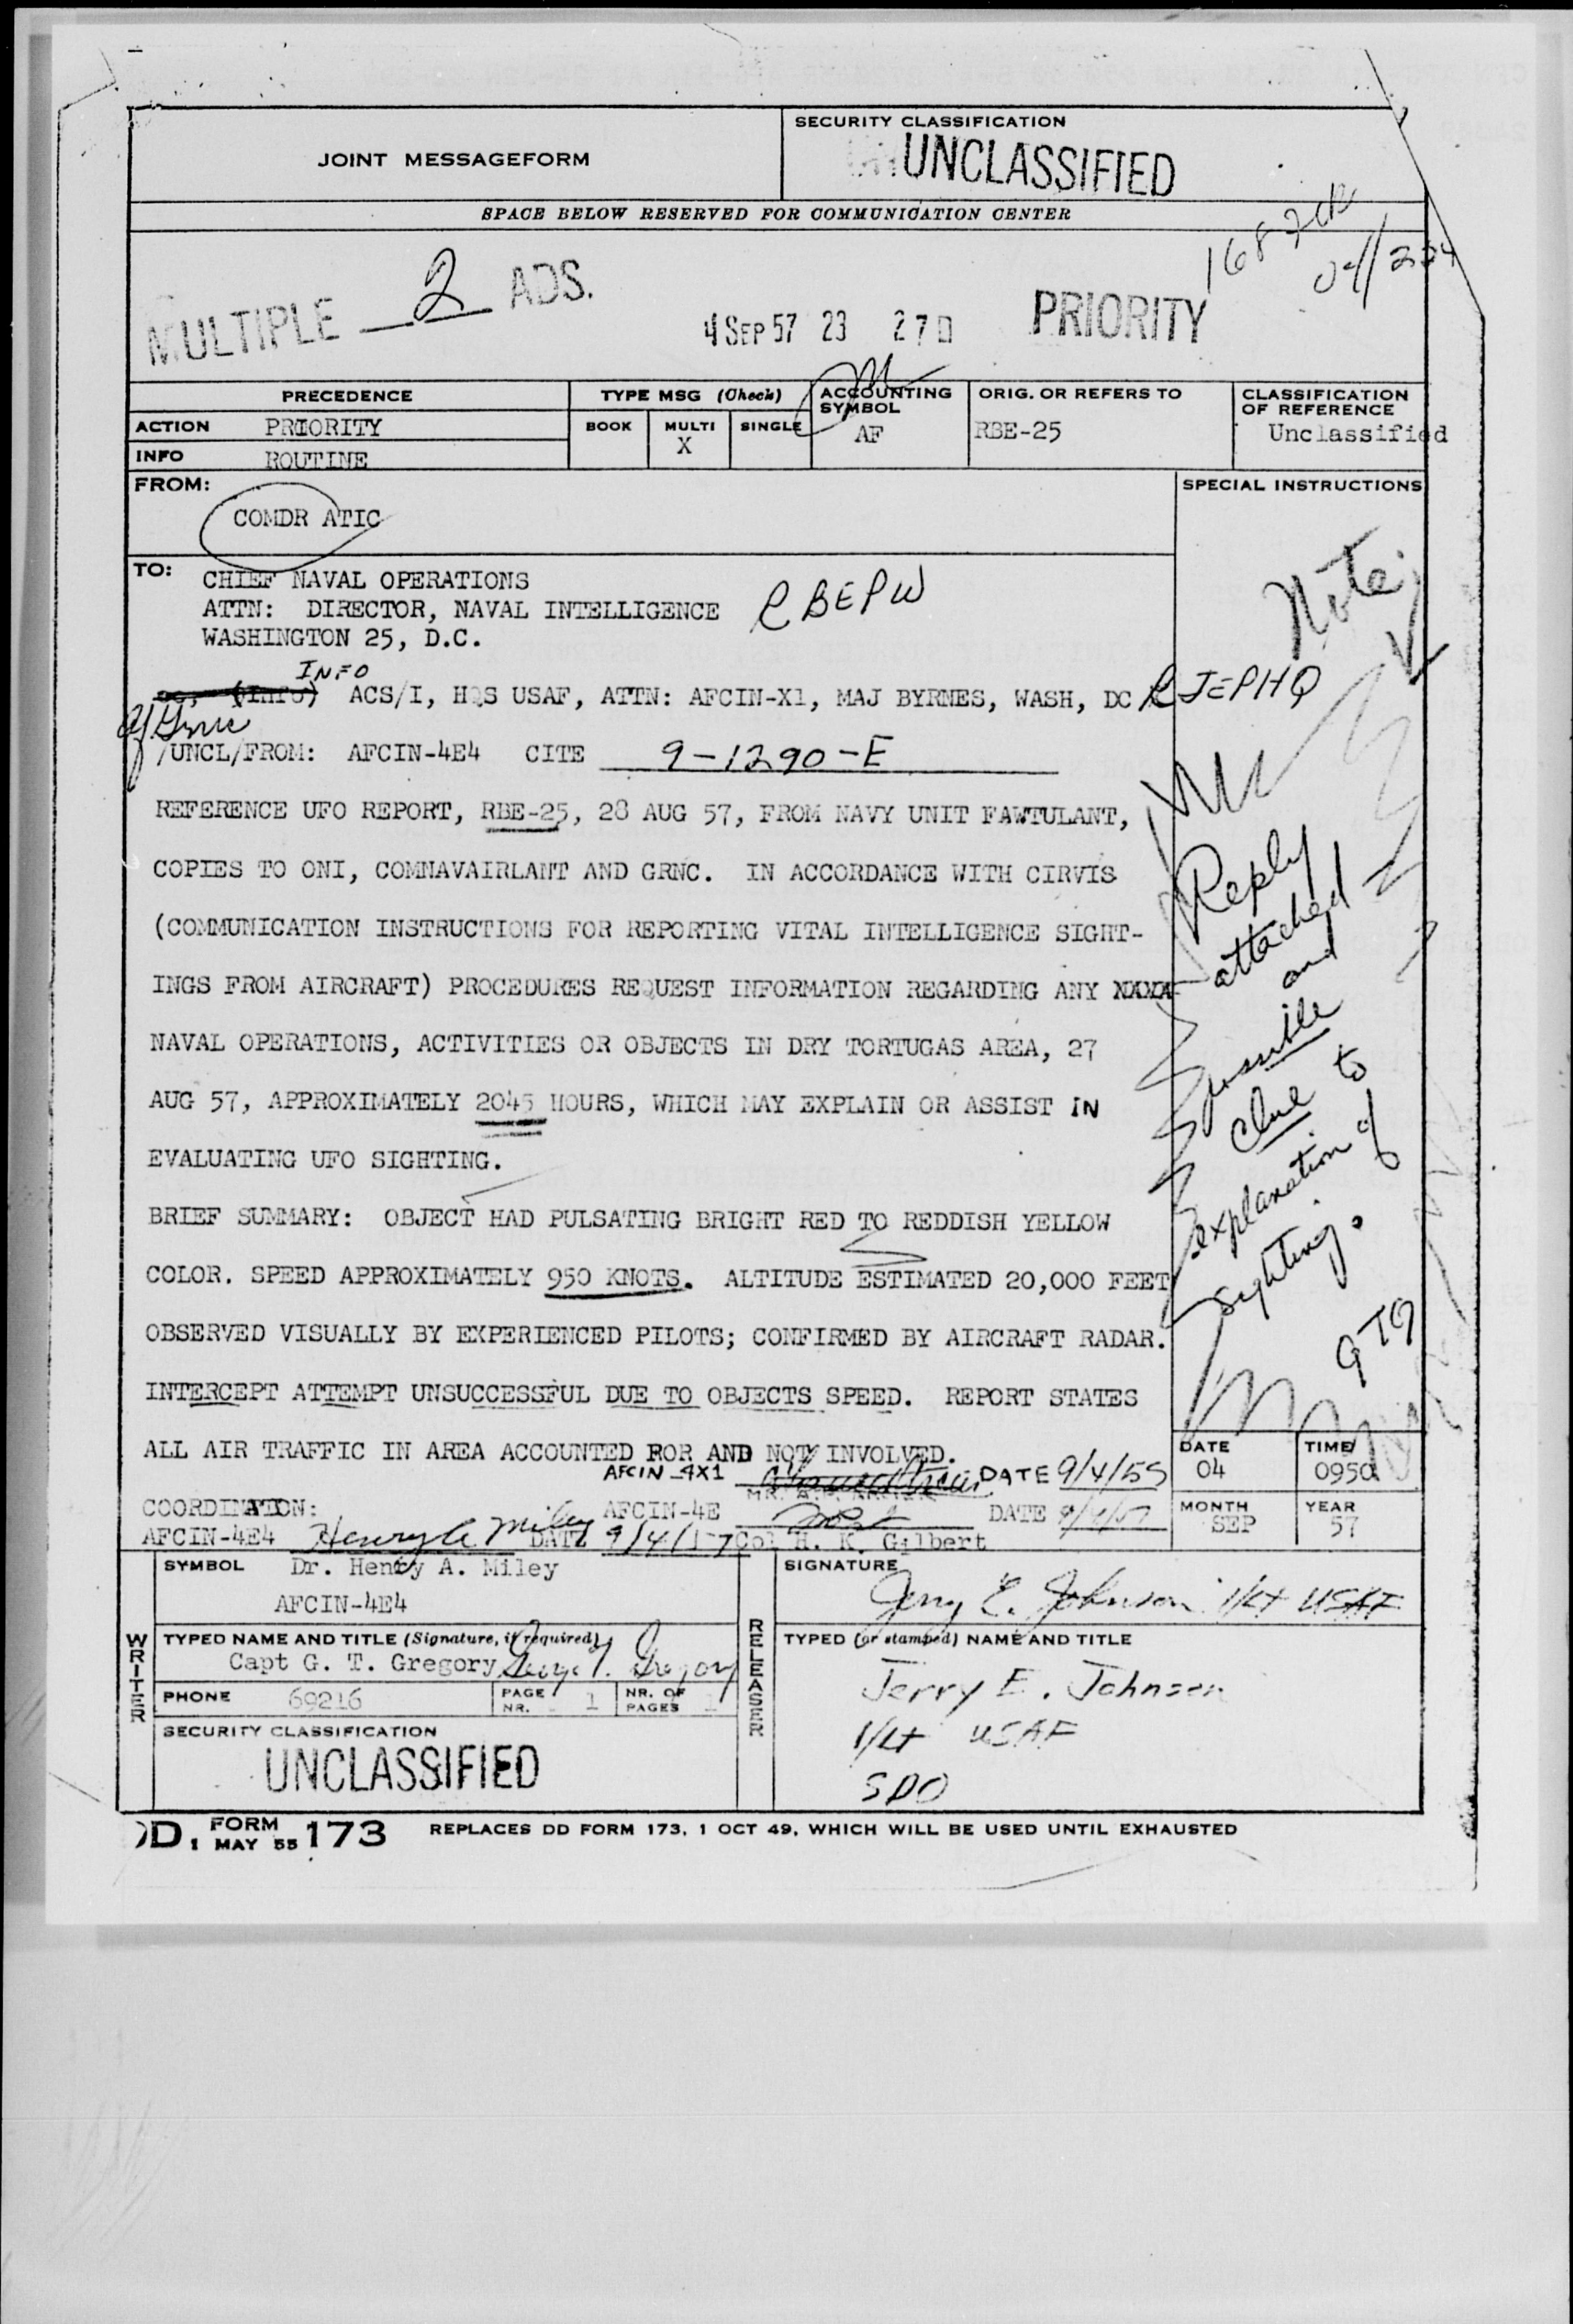 JOINT MESSAGEFORM
SECURITY CLASSIFICATION
UNCLASSIFIED
SPACE BELOW RESERVED FOR COMMUNICATION CENTER
MULTIPLE 2 ADS.
4 SEP 57 23 27
PRIORITY
PRECEDENCE
TYPE MSG (Check)
ACCOUNTING SYMBOL
ORIG. OR REFERS TO
CLASSIFICATION OF REFERENCE
ACTION PRIORITY
BOOK MULTI SINGLE
X
AF
RBE-25
Unclassified
INFO ROUTINE
FROM:
SPECIAL INSTRUCTIONS
COMDR ATIC
TO:
CHIEF NAVAL OPERATIONS
ATTN: DIRECTOR, NAVAL INTELLIGENCE RBEPW
WASHINGTON 25, D.C.
INFO
(Info) ACS/I, HQS USAF, ATTN: AFCIN-X1, MAJ BYRNES, WASH, DC RJEPHQ
/UNCL/FROM: AFCIN-4E4 CITE 9-1290-E
REFERENCE UFO REPORT, RBE-25, 28 AUG 57, FROM NAVY UNIT FAWTULANT,
COPIES TO ONI, COMNAVAIRLANT AND GRNC. IN ACCORDANCE WITH CIRVIS
(COMMUNICATION INSTRUCTIONS FOR REPORTING VITAL INTELLIGENCE SIGHT-
INGS FROM AIRCRAFT) PROCEDURES REQUEST INFORMATION REGARDING ANY XXXX
NAVAL OPERATIONS, ACTIVITIES OR OBJECTS IN DRY TORTUGAS AREA, 27
AUG 57, APPROXIMATELY 2045 HOURS, WHICH MAY EXPLAIN OR ASSIST IN
EVALUATING UFO SIGHTING.
BRIEF SUMMARY: OBJECT HAD PULSATING BRIGHT RED TO REDDISH YELLOW
COLOR. SPEED APPROXIMATELY 950 KNOTS. ALTITUDE ESTIMATED 20,000 FEET
OBSERVED VISUALLY BY EXPERIENCED PILOTS; CONFIRMED BY AIRCRAFT RADAR.
INTERCEPT ATTEMPT UNSUCCESSFUL DUE TO OBJECTS SPEED. REPORT STATES
ALL AIR TRAFFIC IN AREA ACCOUNTED FOR AND NOT INVOLVED.
Note:
Reply
attached
and
possible
clue to
explanation of
sighting.
GTG
AFCIN-4X1 DATE 9/4/55
COORDINATION: AFCIN-4E DATE
AFCIN-4E4 Henry A. Miley DATE 9/4/57 Col H. K. Gilbert
DATE
04
TIME
0950
MONTH
SEP
YEAR
57
SYMBOL Dr. Henry A. Miley
AFCIN-4E4
SIGNATURE
Jerry E. Johnson 1/Lt USAF
WRITER
TYPED NAME AND TITLE (Signature, if required)
Capt G. T. Gregory George T. Gregory
PHONE 69216
PAGE NR. 1
NR. OF PAGES 1
SECURITY CLASSIFICATION
UNCLASSIFIED
RELEASER
TYPED (or stamped) NAME AND TITLE
Jerry E. Johnson
1/Lt USAF
SDO
DD FORM 1 MAY 55 173 REPLACES DD FORM 173, 1 OCT 49, WHICH WILL BE USED UNTIL EXHAUSTED